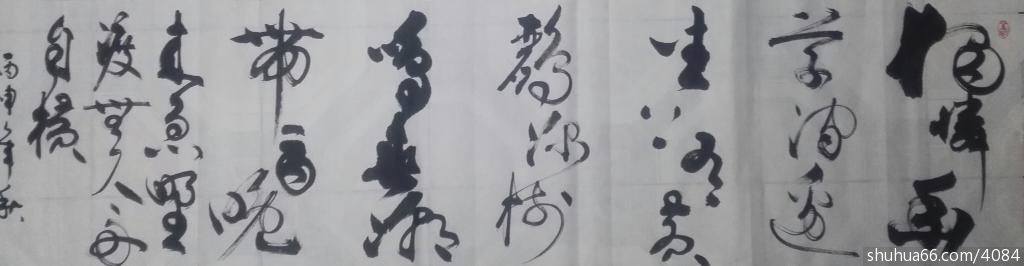 獨憐幽
草澗邊
生上有黃
鸝深樹
鳴春潮
帶雨晚
来急野
渡無人舟
自橫
丙申年秋
shuhua66.com/4084